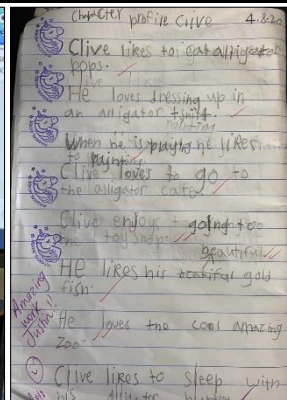 Character profile Clive 4.8.20
Clive likes to eat alligator
pops.
He loves dressing up in
an alligator
painting
When he is he likes
to painting.
Clive loves to go to
the alligator cafe.
Clive enjoys going too
the toy shop.
beautiful
He likes his gold
fish.
Amazing
work
Justin!!
He loves the cool amazing
zoo.
Clive likes to sleep with
his